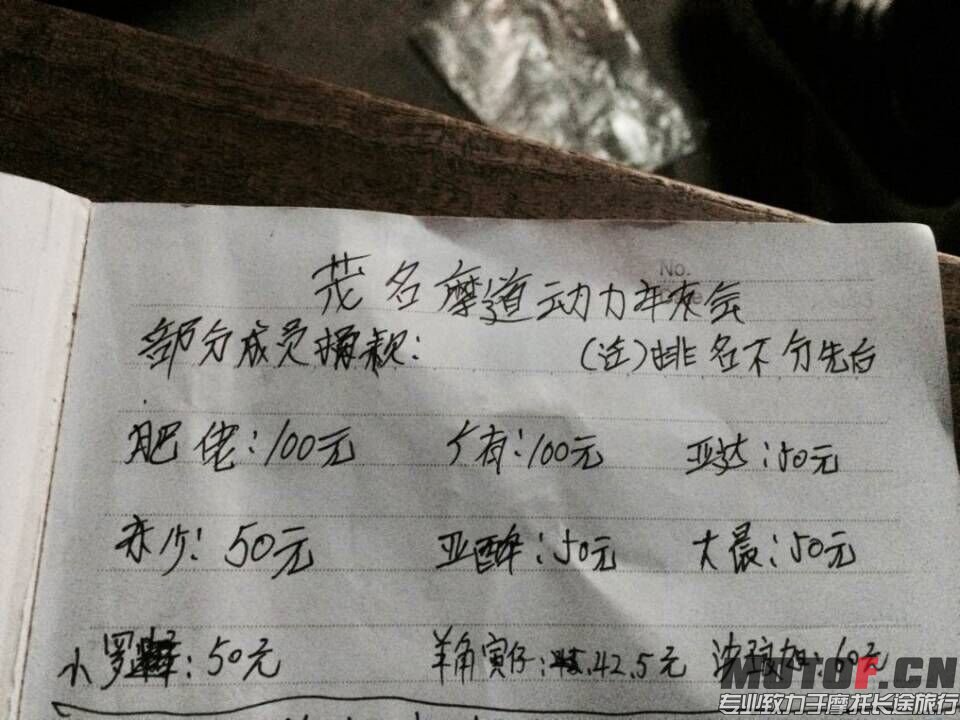 No.
茂名摩道动力车友会
部分成员捐款: (注)排名不分先后
肥佬:100元 个有:100元 亚达:50元
亦少:50元 亚醉:50元 大晨:50元
小罗:50元 羊角寅仔:42.5元 :60元
MOTOF.CN
专业致力于摩托长途旅行